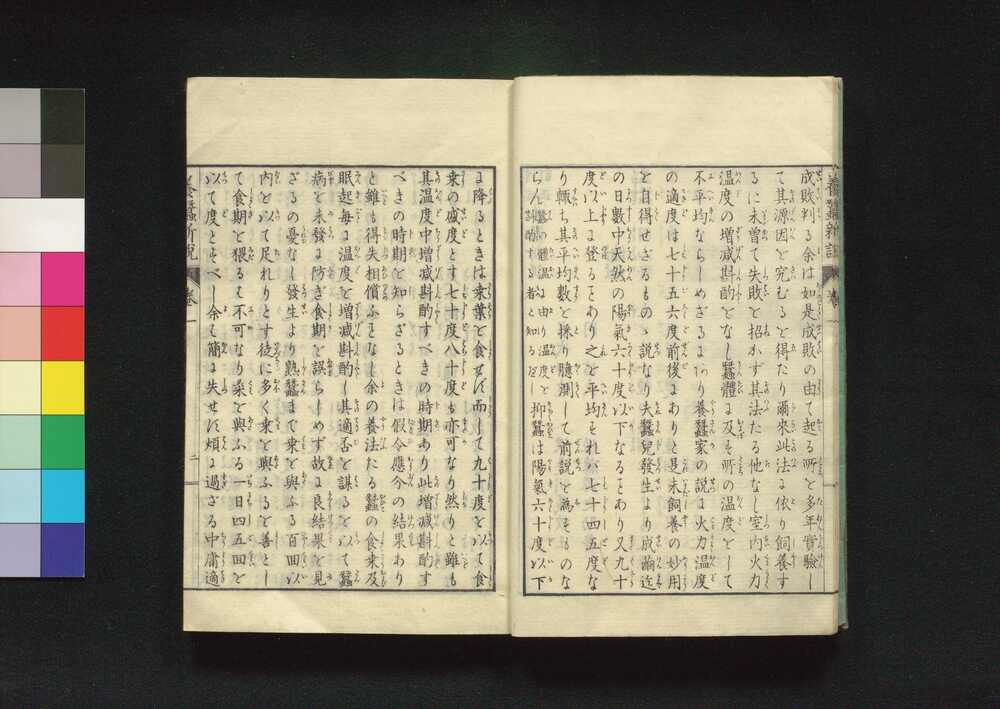 成敗判る余は如是成敗の由て起る所を多年實驗し
て其源因を究むるを得たり爾來此法に依り飼養す
るに未曽て失敗を招かず其法たる他なし室内火力
温度の増减斟酌をなし蠶體に及ぼす所の温度をして
不平均ならしめざるにあり養蠶家の説に火力温度
の適度は七十五六度前後にありと是未飼養の妙用
を自得せざるものゝ説なり夫蠶兒發生より成繭迄
の日數中天然の陽氣六十度以下なるヿあり又九十
度以上に登るヿあり之を平均すれバ七十四五度な
り輙ち其平均數を採り臆測して前説を為すものな
らん
蠶の體温に由り温度を
斟酌する者と知るべし
抑蠶は陽氣六十度以下
に降るときは桒葉を食せず而して九十度を以て食
桒の㦢度とす七十度八十度も亦可なり然りと雖も
其温度中増减斟酌すべきの時期あり此増减斟酌す
べきの時期を知らざるときは假令應分の結果あり
と雖も得失相償ふヿなし余の養法たる蠶の食桒及
眠起毎に温度を増减斟酌し其適否を謀るを以て蠶
病を未發に防ぎ食期を誤らしめず故に良結果を見
ざるの憂なし發生より熟蠶まで桒を與ふる百回以
内を以て足れりとす徒に多く桒を與ふるを善とし
て食期を猥るは不可なり桒を與ふる一日四五回を
以て度とすべし余は簡に失せず煩に過ざる中庸適
養蠶新説 卷一
二